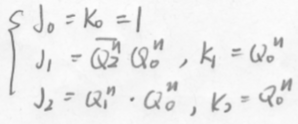 J₀ = K₀ = 1
J₁ = Q̅₂ⁿ Q₀ⁿ , K₁ = Q₀ⁿ
J₂ = Q₁ⁿ · Q₀ⁿ , K₂ = Q₀ⁿ